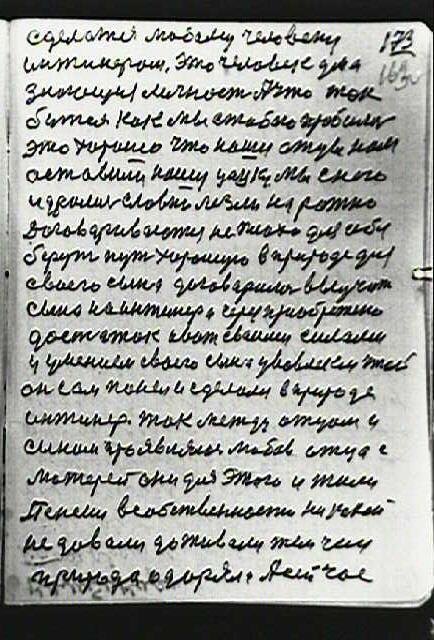 сделался любому человеку 173
инжинером, Это человек для
знающия личность А это так
бытся как мы с тобою пробили
Это хорошо что наши отцы нам
оставили нашу шашку мы с него
и дрались словно лезли на рожно
Договариваются не плохо для себя
берут путь хорошую в природе для
своего сына договарился выучит
сына на инженера еще приобретено
достаток и вот своими силами
и умением своего сына
он сам понел и сделали в природе
инжинер. так между отцом и
сином проявилася любов отца с
матерей они для Этого и жили
Пенсии в собственности никакой
не довали доживали тем чем
природа одоряла А сейчас